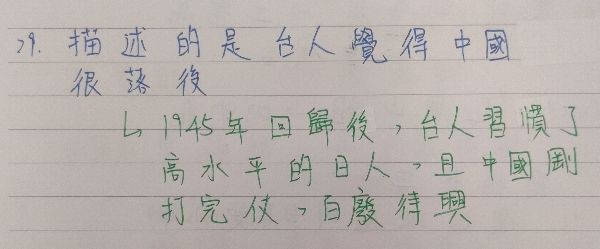 29. 描述的是台人覺得中國
很落後
↳1945年回歸後，台人習慣了
高水平的日人，且中國剛
打完仗，百廢待興